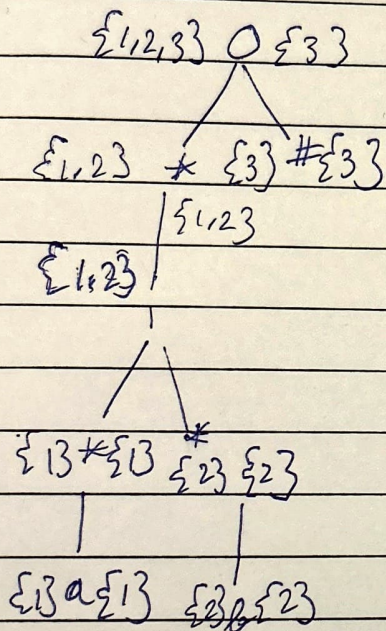 {1,2,3} O {3}
{1,2} * {3} #{3}
{1,2}
{1,2}
|
*
{1} * {1} {2} {2}
{1} a {1} {2} b {2}